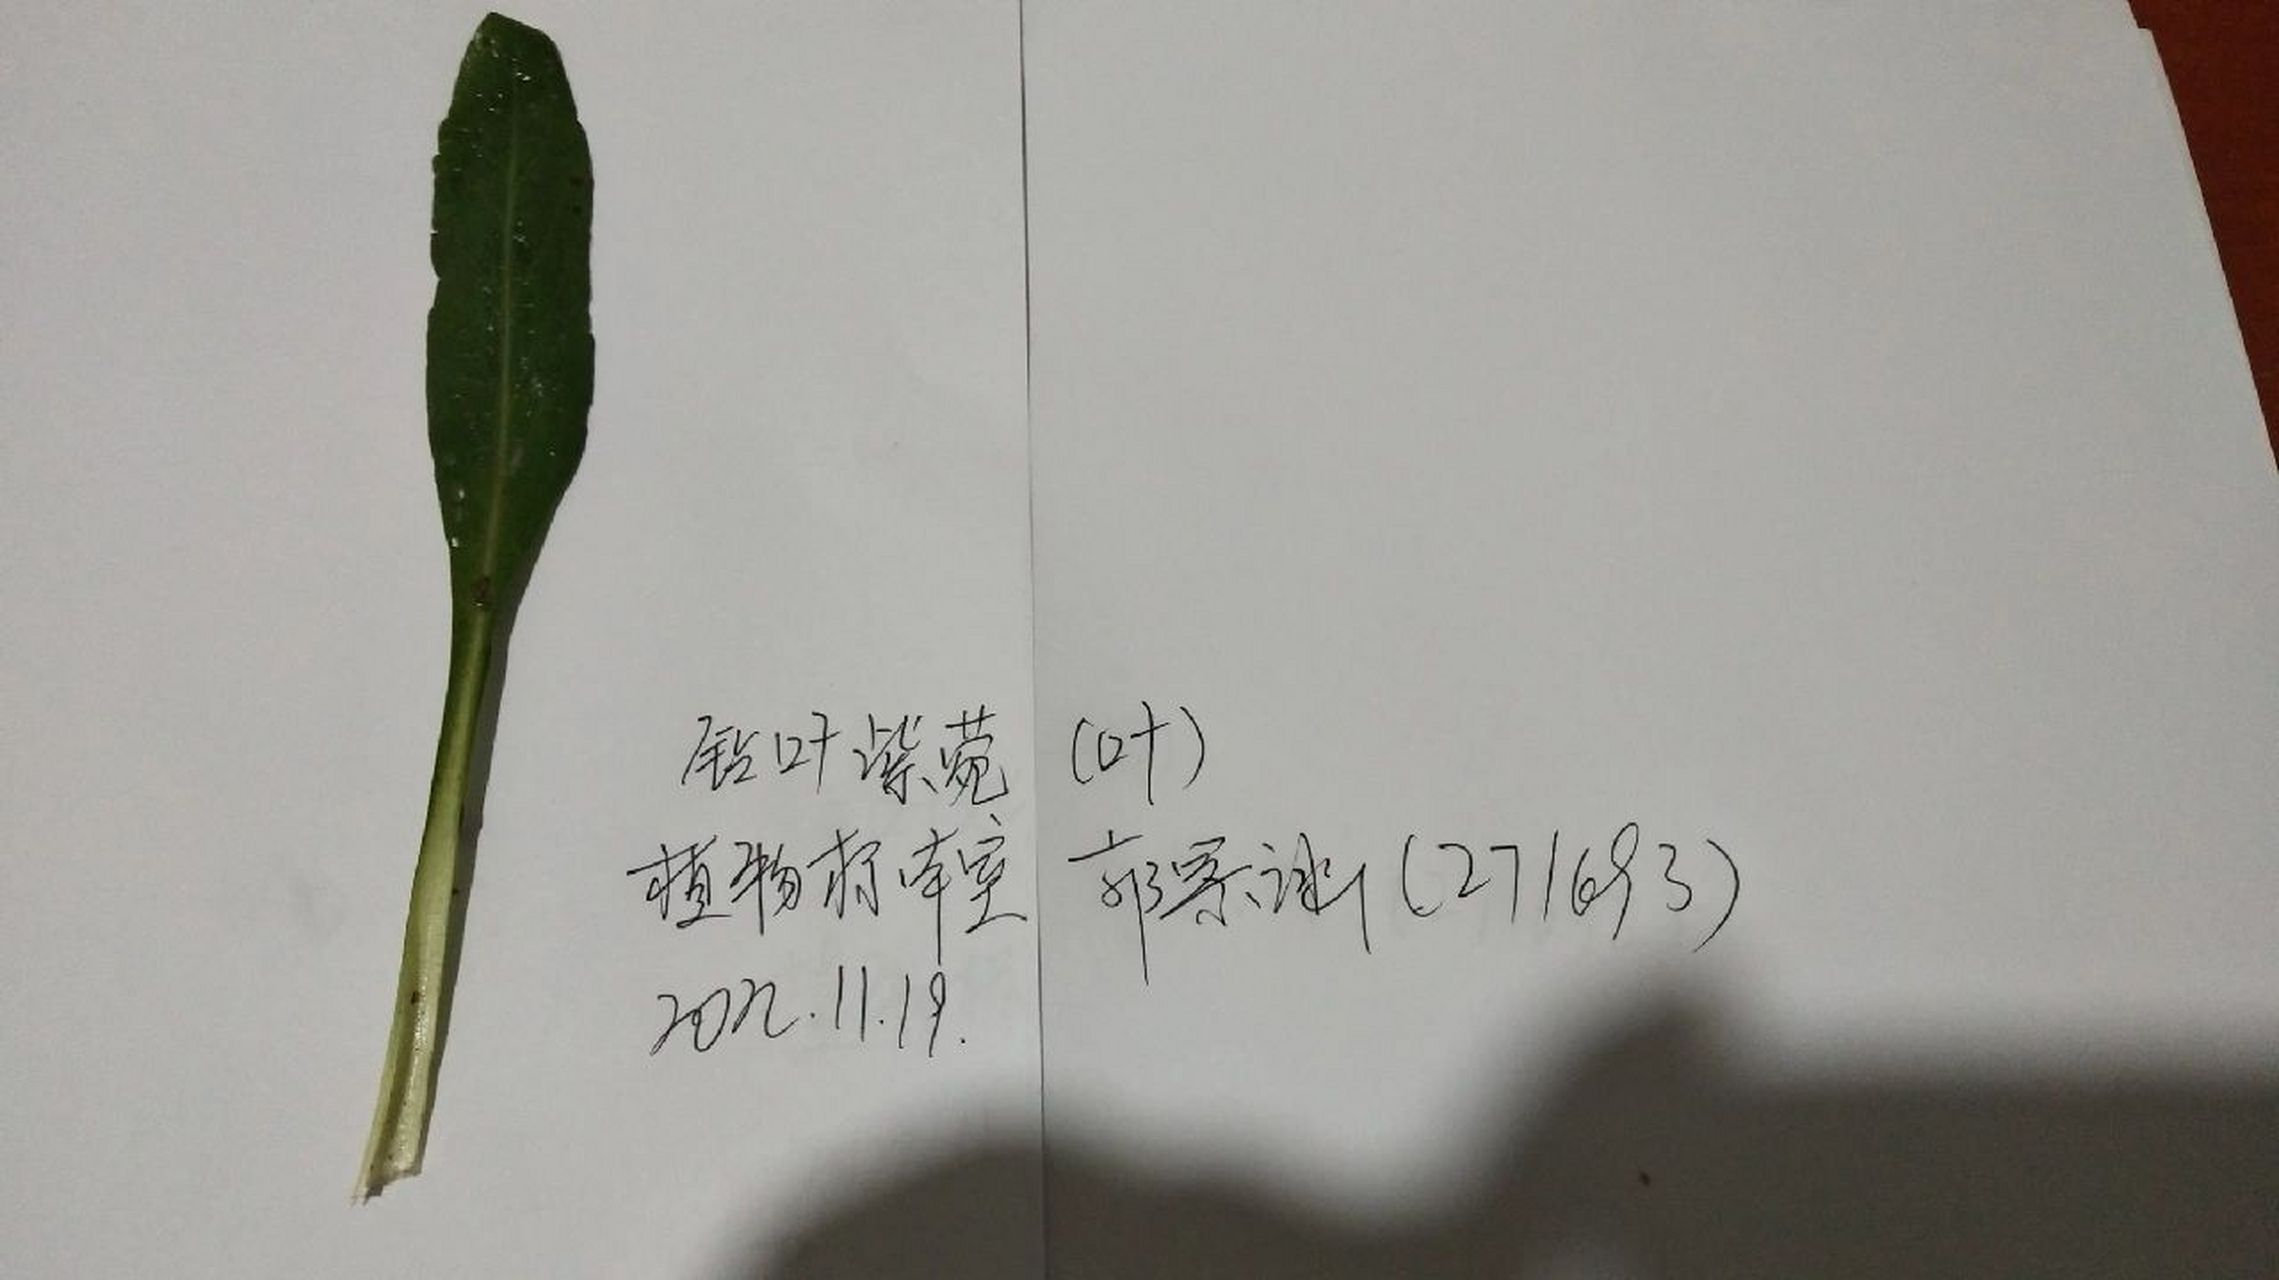 叶紫菀 (叶)
植物标本室 郭 (271693)
2022.11.19.